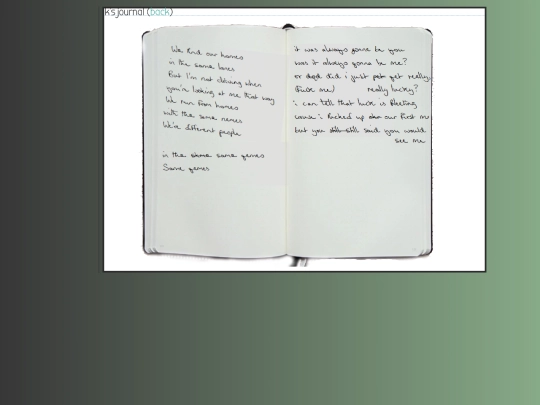 k's journal (back)
We find our homes
in the same bones
But I'm not driving when
you're looking at me that way
We run from homes
with the same names
We're different people
in the same same games
Same games
it was always gonna be you
was it always gonna be me?
or did i just get really
(fuck me) really lucky?
i can tell that luck is fleeting
cause i fucked up our first me
but you still still said you would
see me